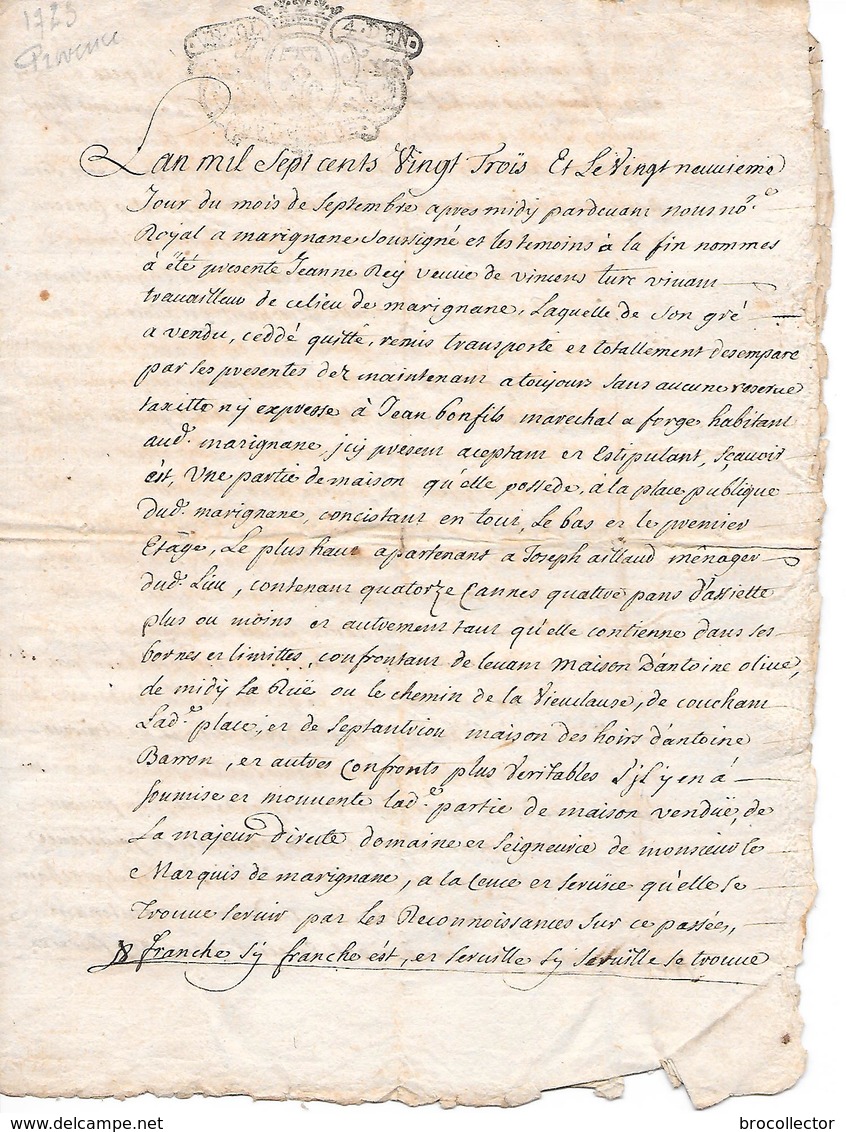 1723
Provence
4 DEN
Lan mil Sept cents Vingt Trois Et Le Vingt neuvieme
Jour du mois de Septembre apres midy pardevant nous no.re
Royal a marignane soussigné et les temoins à la fin nommes
à été presente Jeanne Rey veuve de vincens turc vivant
travailleur de ce lieu de marignane, Laquelle de son gré
a vendu, ceddé quitté, remis transporte et totallement desemparé
par ses presentes dez maintenant a toujours sans aucune reserve
taxitte n'y expresse à Jean bonfils marechal a forge habitant
aud.t marignane, jcy present aceptant et Estipulant, sçavoir
ést, Une partie de maison qu'elle possede, à la place publique
dud.t marignane, concistant en tout, Le bas et le premier
Etage, Le plus haut apartenant a Joseph aillaud ménager
dud.t Lieu, contenant quatorze Cannes quattre pans d'assiette
plus ou moins et autrement tant qu'elle contienne dans ses
bornes et limittes, confrontant de levant maison D'antoine olive,
de midy La Rüe ou le chemin de la Vieuclause, de couchant
Lad.e place, et de Septantrion maison des hoirs d'antoine
Barron, et autres Confronts plus Veritables S'jl y en à
soumise et mouvente lad.e partie de maison venduë, de
La majeur directe domaine et Seigneurie de monsieur le
Marquis de marignane, a la Cence et Service qu'elle se
Trouve servir par les Reconnoissances sur ce passées,
franche sy franche ést, et serville sy serville se trouve
brocollector